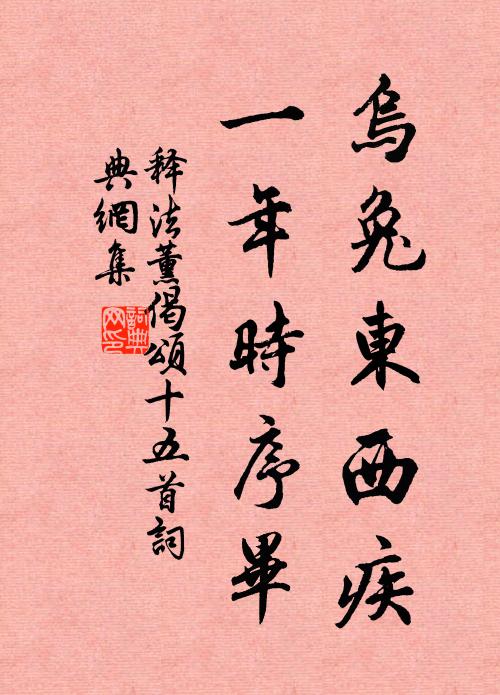 烏兔東西疾
一年時序畢
释法薰偈頌十五首詞
典網集
詞典网印